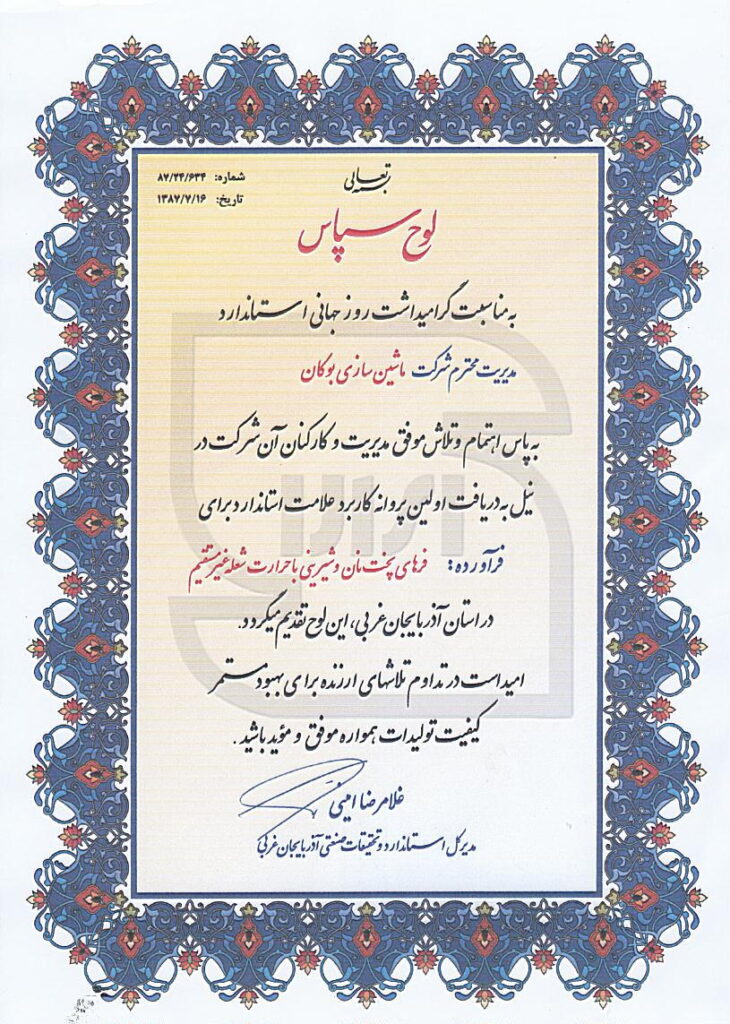 بسمه تعالی
شماره: ۸۷/۲۴/۶۳۴
تاریخ: ۱۳۸۷/۷/۱۶
لوح سپاس
به مناسبت گرامیداشت روز جهانی استاندارد
مدیریت محترم شرکت ماشین سازی بوکان
به پاس اهتمام و تلاش موفق مدیریت و کارکنان آن شرکت در
نیل به دریافت اولین پروانه کاربرد علامت استاندارد برای
فرآورده: فرهای پخت نان و شیرینی با حرارت شعله غیر مستقیم
در استان آذربایجان غربی، این لوح تقدیم میگردد.
امید است در تداوم تلاشهای ارزنده برای بهبود مستمر
کیفیت تولیدات همواره موفق و مؤید باشید.
غلامرضا امینی
مدیر کل استاندارد و تحقیقات صنعتی آذربایجان غربی